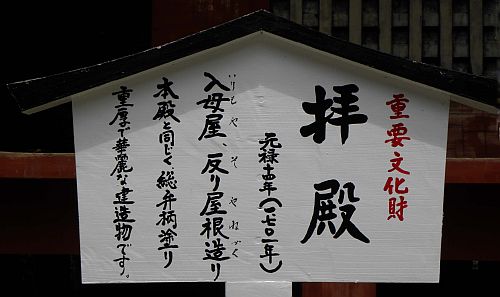 重要文化財
拝殿
元禄十四年(一七〇一年)
いりもや そ やねづく
入母屋、反り屋根造り
本殿と同じく総弁柄塗り
重厚で華麗な建造物です。